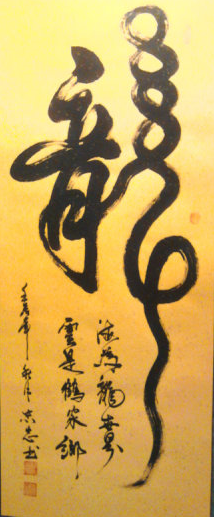 龍
海為龍世界
雲是鶴家鄉
壬辰年秋月